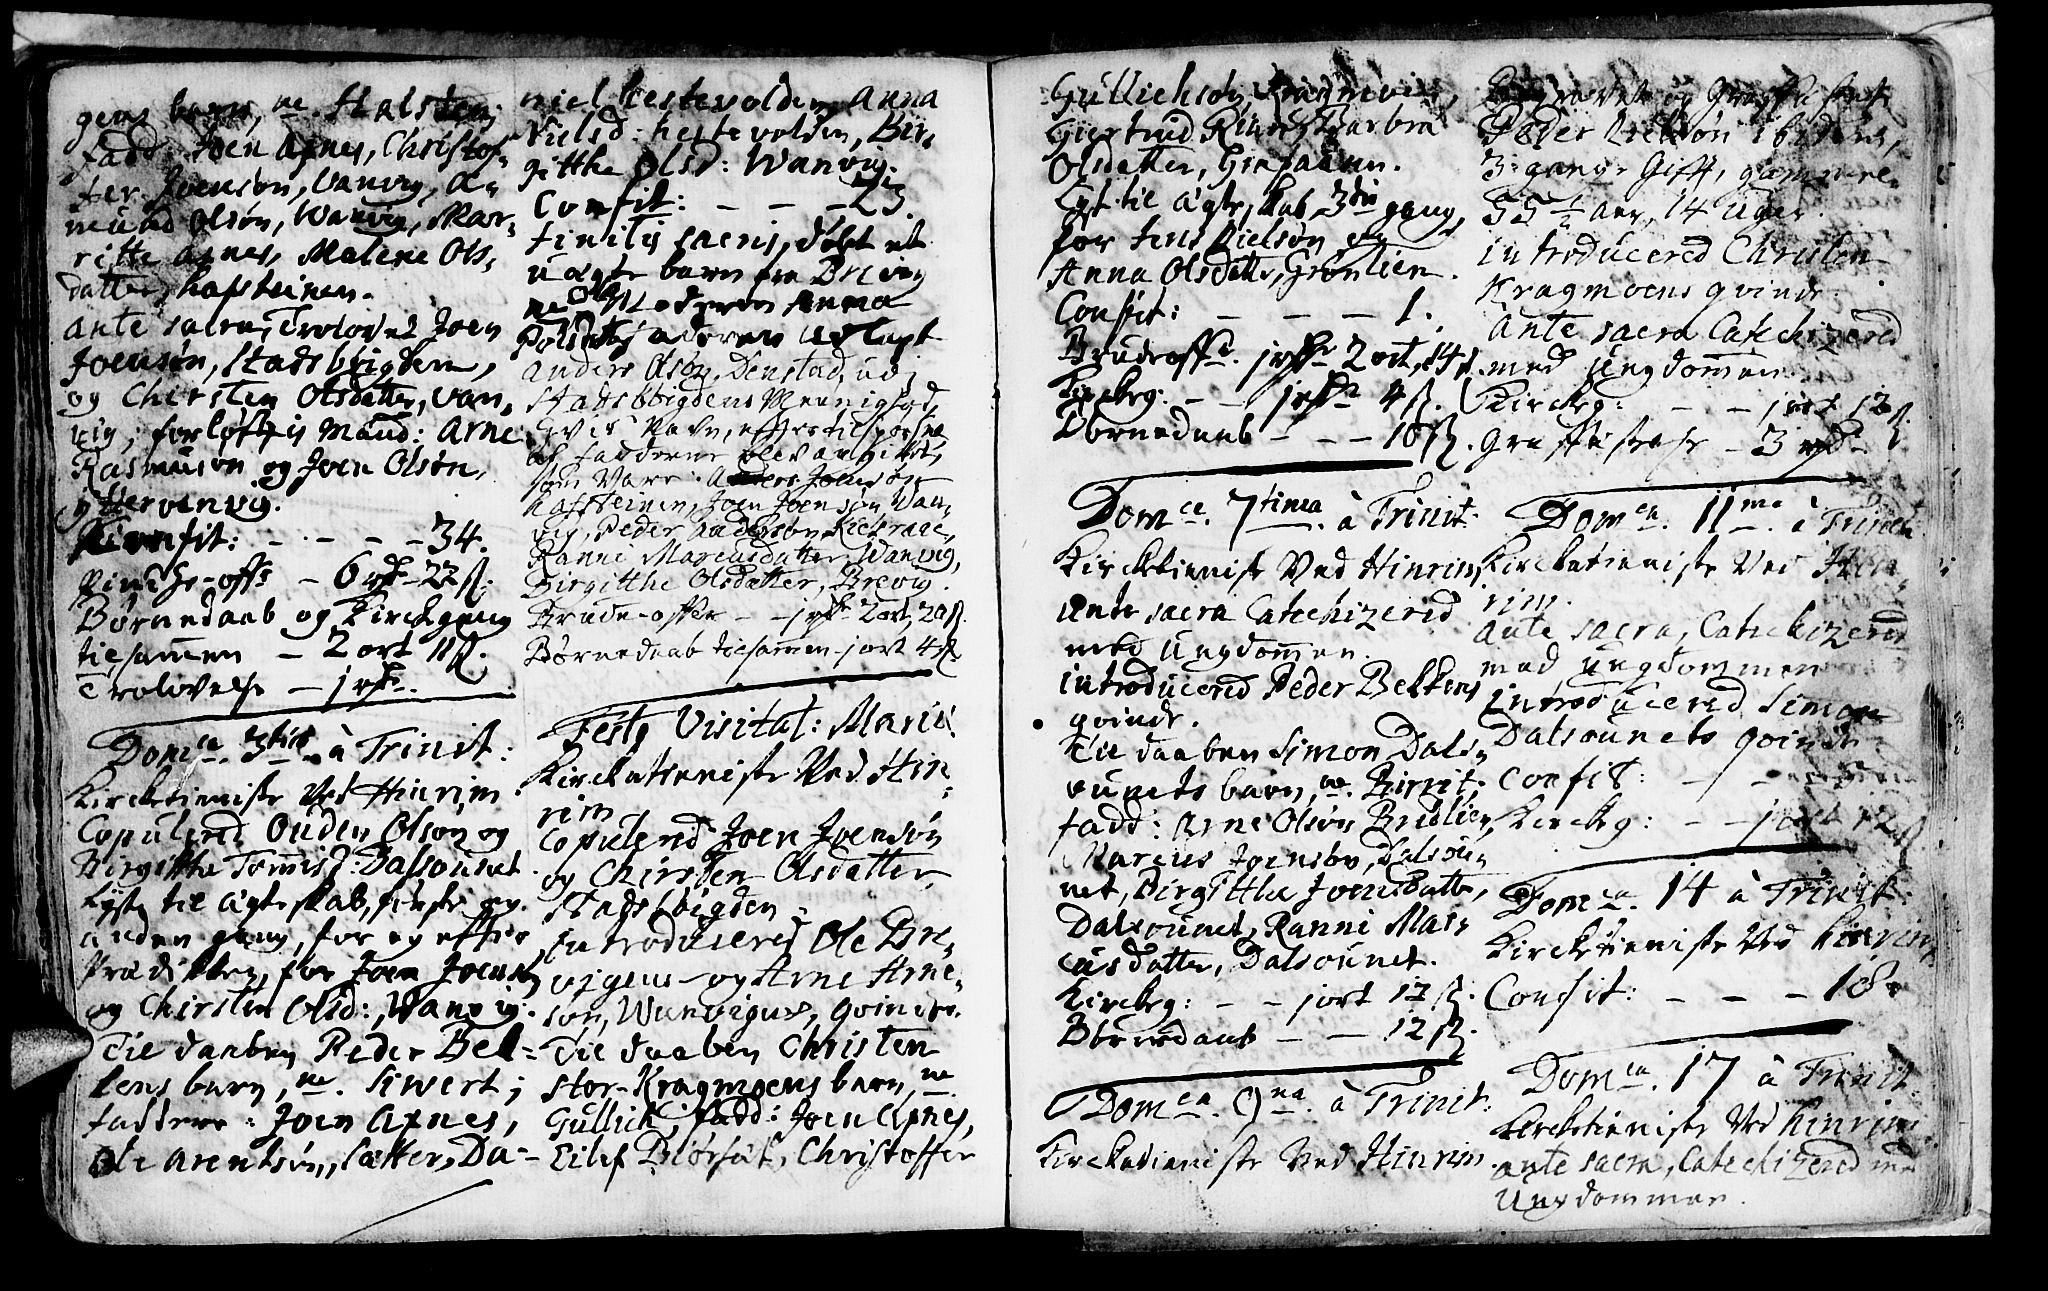 gens barn, ne. Halsten;
fadd: Joen Apnes, Christof-
fer Joensøn, Vanvig, A-
meund Olsøn, Wanvig, Mar-
ritte Apnes, Malene Ols-
datter, hafsteinen.
Ante sacra, Trolovet Joen
Joensøn, Stadsbbigden,
og Chirsten Olsdatter, Van-
vig; forløftis mænd: Arne
Rasmusøn og Joen Olsøn,
yttervanvig.
Confit: - - - - 34.
- 6 rdr 22 ß.
Børnedaab og Kirckgang
tilsam̄en - 2 ort 11 ß.
Trolovelse - 1 rdr.
Domca. 3tia à Trinit:
Kircketieniste Ved Hinrim
Copulered Ouden Olsøn og
Birgitthe Tom̄isd: Dalsounet.
Lyst til ægteskab, første og
anden gang, for og efter
Prædikken, for Joen Joensøn
og Chirsten Olsd: Wanvig.
Til daaben Peder Bek-
kens barn, ne. Siwert;
faddere: Joen Apnes,
Ole Arentsøn, Sætter, Da-
niel hestevolden, Anna
Nielsd: hestevolden, Bir-
gitthe Olsd: Wanvig.
Confit: - - - 23.
finitis sacris, døbt et
uægte barn fra Brevig
ne. Ole Moderen Anna
faderen udlagt
Anders Olsøn, Denstad, udj
Stadsbbigdens Menighed,
som Vare: Anders Joensøn
hafsteinen, Joen Joensøn Van-
vig, Peder Andersøn
Ranni Marcusdatter Wanvig,
Birgitthe Olsdatter, Brevig.
Brude-offer - - 1 rdr 2 ort, 20 ß.
Børnedaab tilsam̄en 1 ort 4 ß.
Festo Visitat: Mariæ
Kircketieniste Ved Hin-
rim
Copulered Joen Joensøn
og Chirsten Olsdatter
Stadsbbigden
Introducered Ole Bre-
vigens og Arne Arne-
søn, Wanvigens, qvinder.
Til daaben Christen
Stor-Kragmoens barn, ne.
Gullick; fadd: Joen Apnes,
Eilef Biørset, Christoffer
Gullichsøn,
Giertrud Barbra
Olsdatter,
Lyst til ægteskab 3die gang,
for Jens Nielsøn og
Anna Olsdatter, Grønlien.
Confit: - - - - 1.
Brudeoffr. 1 rdr 2 ort, 14 ß.
Kirckg: - - 1 rdr 4 ß.
Børnedaab - - - 10 ß.
Domca. 7tima. à Trinit:
Kircketieniste Ved Hinrim,
Ante sacra Catechizered
med Ungdom̄en.
introducered Peder Bekkens
qvinde.
Til daaben Simon Dals-
ounets barn, ne. Birrit;
fadd: Arne Olsøn Brudlien,
Marcus Joensøn, Dalsou-
net, Birgitthe Joensdatter,
Dalsounet, Ranni Mar-
cusdatter, Dalsounet.
Kirckg: - - 1 ort 12 ß.
Børnedaab - - 12 ß.
Domca. 9na. à Trinit:
Kircketieniste Ved Hinrim.
Begravet og
Peder
3. gange Gift, gam̄el
55 ½ aar, 14 uger.
introducered Christen
Kragmoens qvinde.
Ante sacra Catechizered
med Ungdom̄en.
Kirckg: - - 1 ort 12 ß.
- 3 rdr
Domca. 11ma. à Trinit:
Kircketieniste Ved Hin-
rim.
Ante sacra, Catechizered
med Ungdommen
Introducered Simon
Dalsounets qvinde.
Confit: - - -
Kirckg: - - 1 ort 12 ß.
Domca. 14 à Trinit:
Kircketieniste Ved Hinrim.
Confit: - - - 18.
Domca. 17 à Trinit:
Kircketieniste Ved Hinrim
Ante sacra, Catechizered med
Ungdommen.